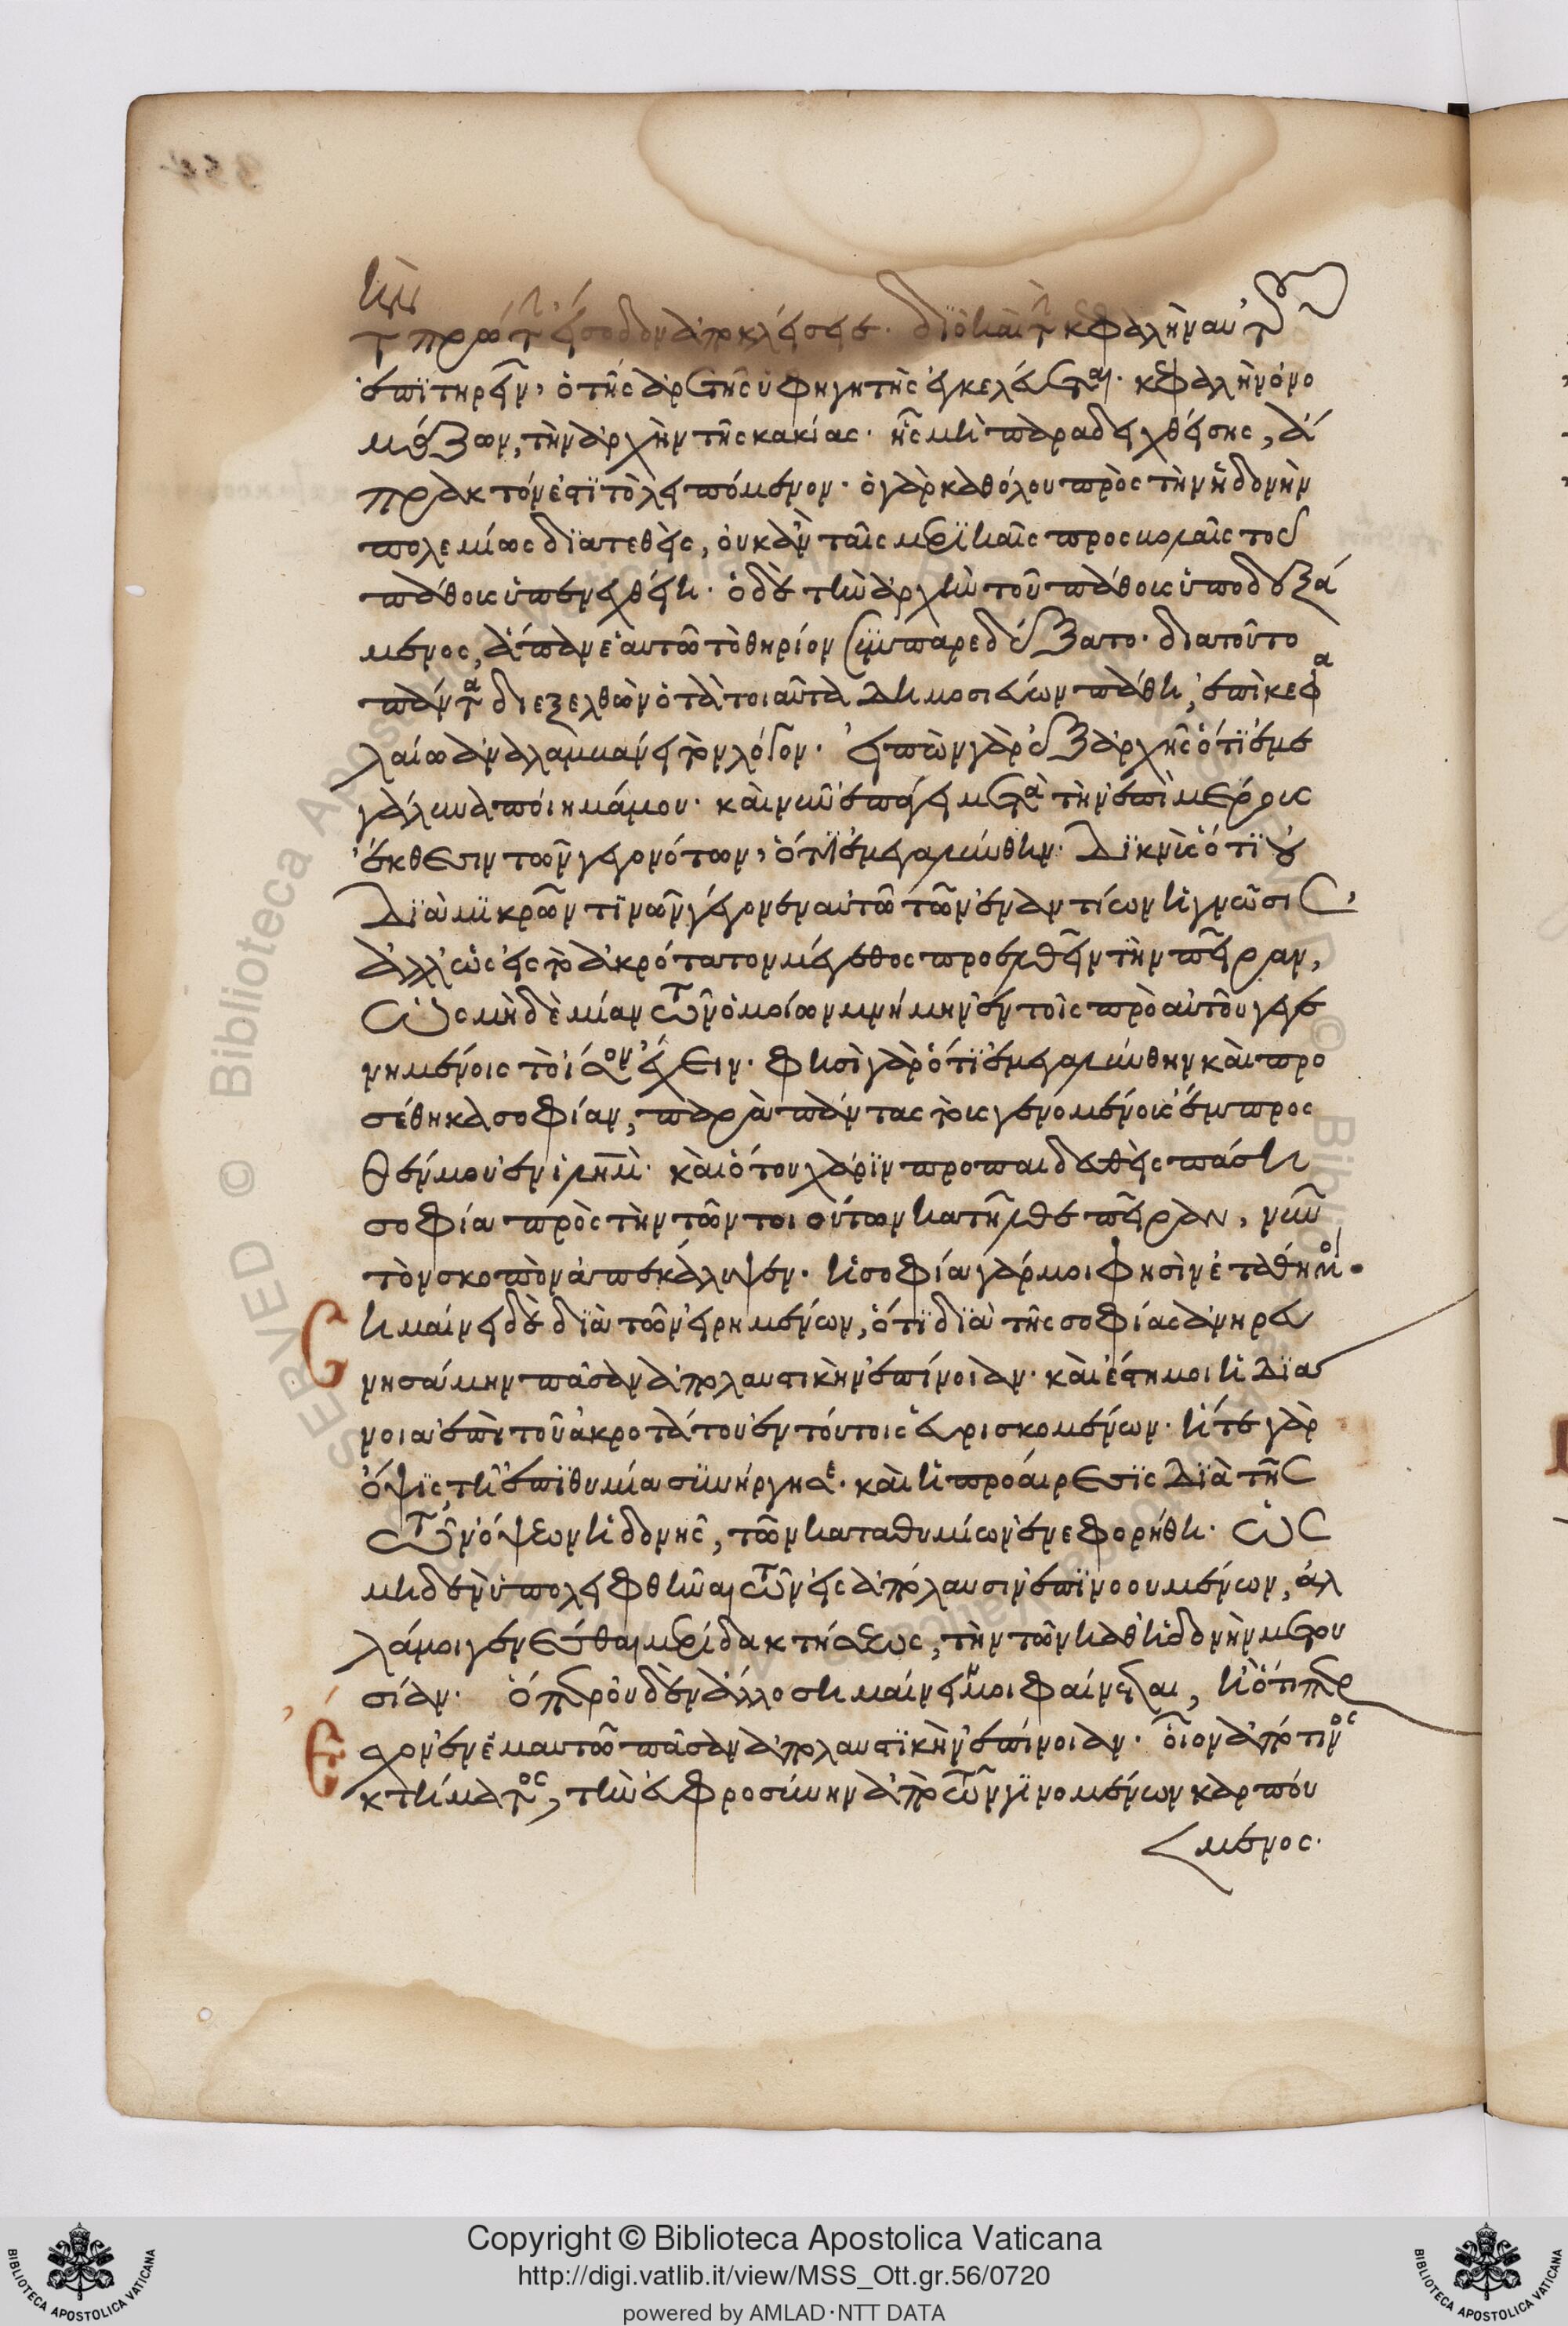 τὴν πρώτην εἴσοδον ἀποκλείσειε. διὸ καὶ τὴν κεφαλὴν αὐτοῦ
ἐπιτηρεῖν, ὁ τῆς ἀρετῆς ὑφηγητὴς ἐγκελεύεται. κεφαλὴν ὀνο
μάζων, τὴν ἀρχὴν τῆς κακίας. ἧς μὴ παραδεχθείσης, ἄ
πρακτόν ἐστι τὸ λειπόμενον. ὁ γὰρ καθόλου πρὸς τὴν ἡδονὴν
πολεμίως διατεθεὶς, οὐκ ἂν ταῖς μερικαῖς προσβολαῖς τοῦ
πάθους ὑπενεχθείη. ὁ δὲ τὴν ἀρχὴν τοῦ πάθους ὑποδεξά
μενος, ἅπαν ἑαυτῶ τὸ θηρίον συμπαρεδέξατο. διατοῦτο
πάντα διεξελθὼν ὁ τὰ τοιαῦτα δημοσιεύων πάθη, ἐπὶ κεφα
λαίω ἀναλαμβάνει τὸν λόγον. εἰπὼν γὰρ ἐξ ἀρχῆς ὅτι ἐμε
γάλυνα ποίημά μου. καὶ νῦν ἐπάγει μετὰ τὴν ἐπὶ μέρους
ἔκθεσιν τῶν γεγονότων, ὅτι ἐμεγαλύνθην. δεικνὺς ὅτι οὐ
διὰ μικρῶν τινῶν γέγονεν αὐτῶ τῶν ἐναντίων ἡ γνῶσις,
ἀλλ' ὡς εἰς τὸ ἀκρότατον μέγεθος προσελθεῖν τὴν πεῖραν,
ὡς μηδὲ μίαν τῶν ὁμοίων μνήμην ἐν τοῖς πρὸ αὐτοῦ γεγε
νημένοις τὸ ἴσον ἔχειν. φησὶ γὰρ ὅτι ἐμεγαλύνθην καὶ προ
σέθηκα σοφίαν, παρὰ πάντας τοὺς γενομένους ἔμπροσ
θέν μου ἐν ἱλημ. καὶ ὅτου χάριν προπαιδευθεὶς πάση
σοφία πρὸς τὴν τῶν τοιούτων κατῆλθε πεῖραν, νῦν
τὸν σκοπὸν ἀπεκάλυψεν. ἡ σοφία γάρ μοι φησὶν ἐστάθη μοι.
Σημαίνει δὲ διὰ τῶν εἰρημένων, ὅτι διὰ τῆς σοφίας ἀνηρευ
νησάμην πᾶσαν ἀπολαυστικὴν ἐπίνοιαν. καὶ ἔστη μοι ἡ διά
νοια ἐπὶ τοῦ ἀκροτάτου ἐν τούτοις εὑρισκομένων. ἥτε γὰρ
ὄψις τῆ ἐπιθυμία συνήργησε. καὶ ἡ προαίρεσις διὰ τῆς
τῶν ὄψεων ἡδονῆς, τῶν καταθυμίων ἐνεφορήθη. ὡς
μηδὲν ὑπολειφθῆναι τῶν εἰς ἀπόλαυσιν ἐπινοουμένων, ἀλ
λά μοι γενέσθαι μερίδα κτήσεως, τὴν τῶν καθ' ἡδονὴν μετου
σίαν. ὅπερ οὐδὲν ἄλλο σημαίνειν μοι φαίνεται, ἢ ὅτιπερ
ἔσχον ἐν ἐμαυτῶ πᾶσαν ἀπολαυστικὴν ἐπίνοιαν. οἷον ἀπό τινος
κτήματος, τὴν εὐφροσύνην ἀπὸ τῶν γινομένων καρπού
μενος.